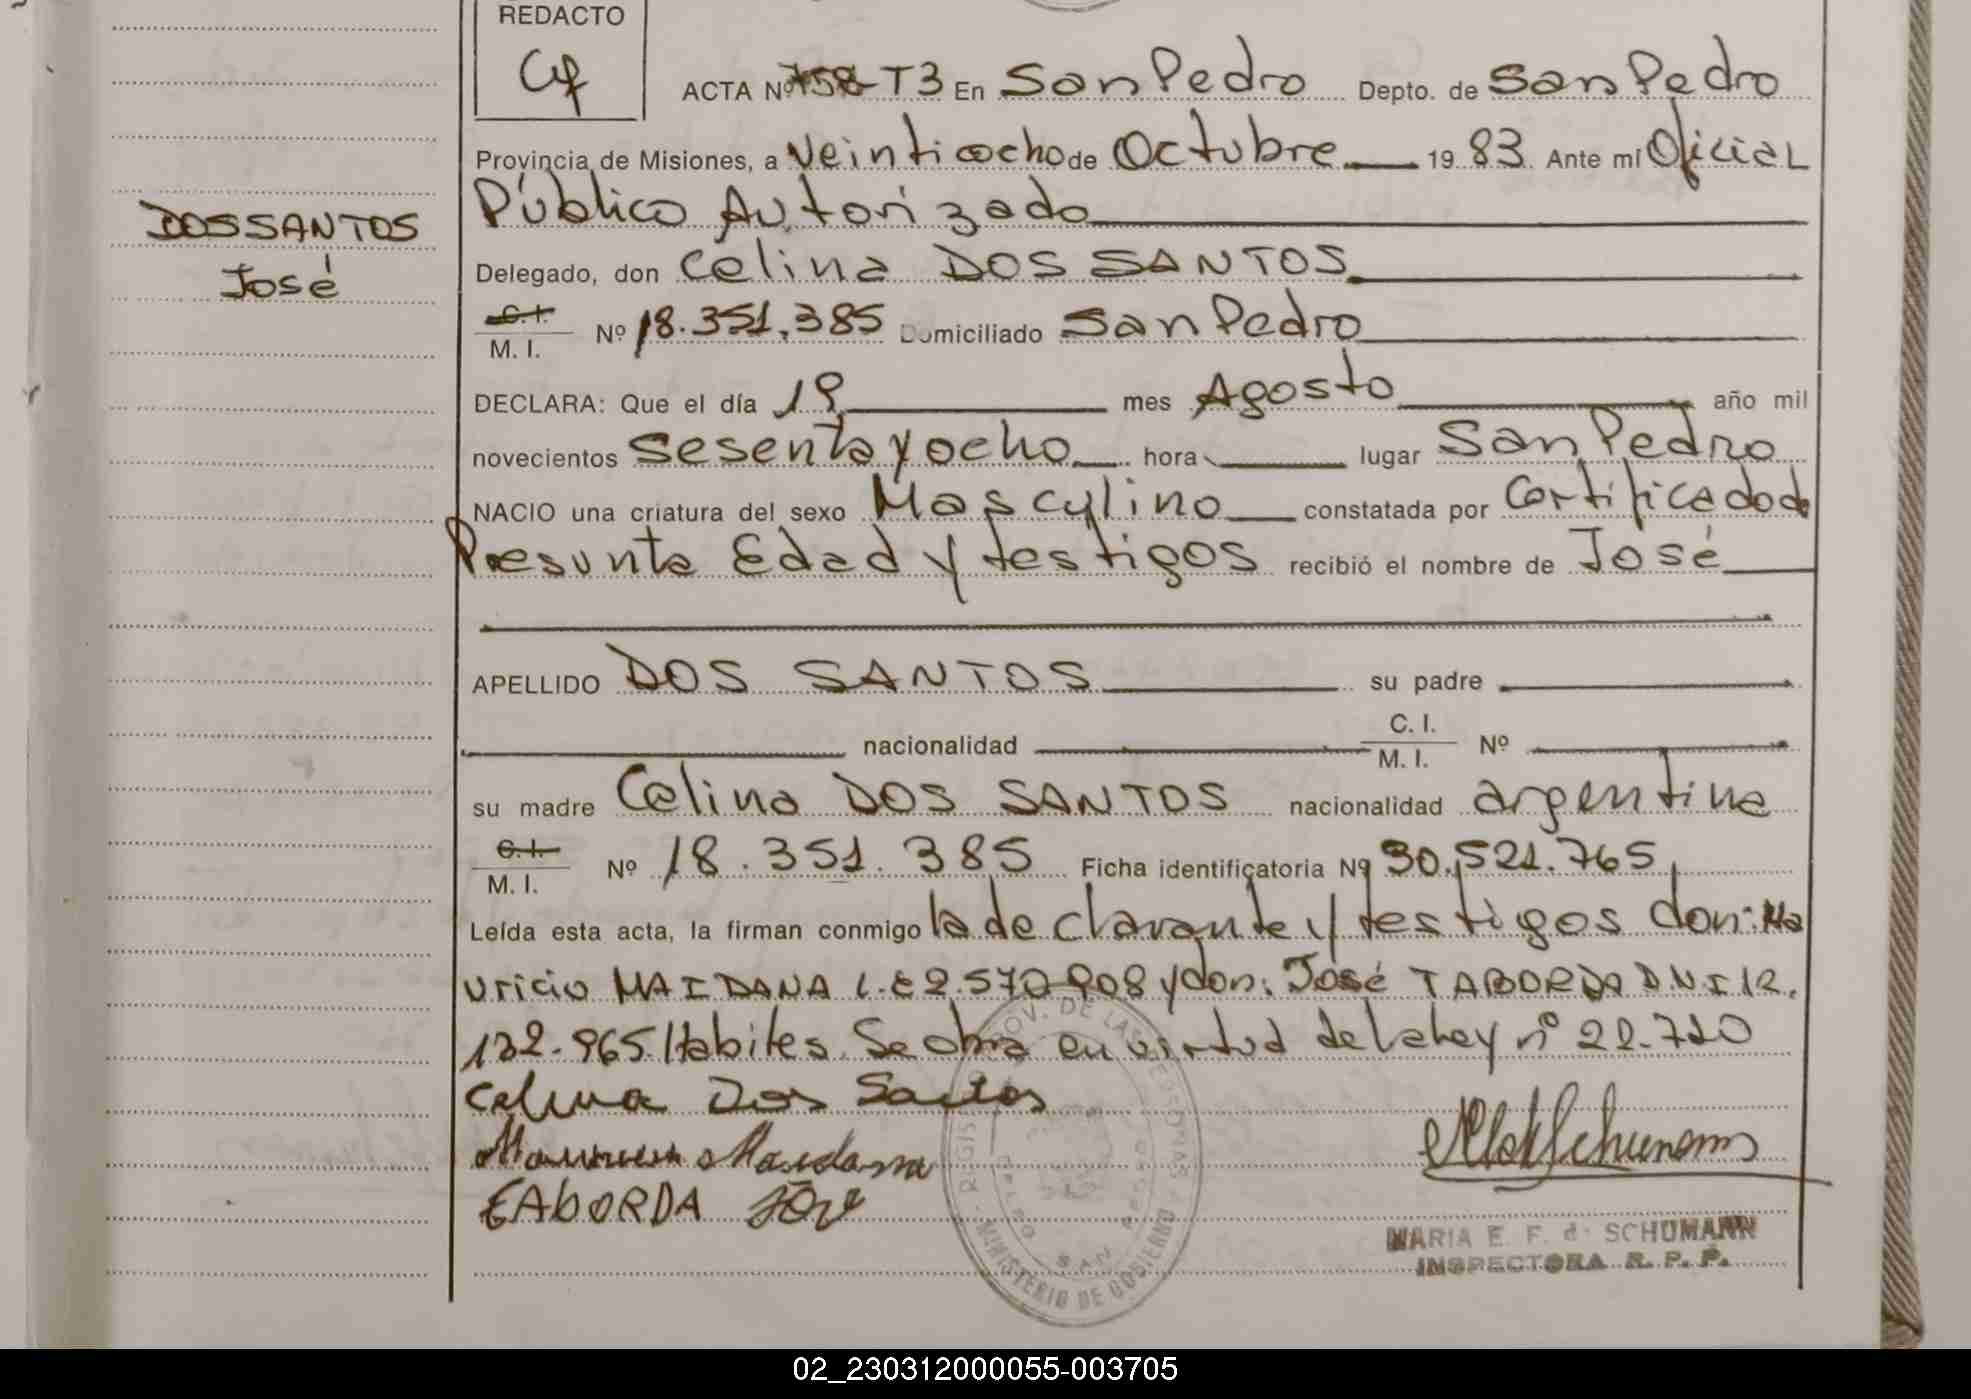 REDACTO
ACTA Nº 758 T3 En San Pedro Depto. de San Pedro
Provincia de Misiones, a Veintiocho de Octubre 19 83 Ante mí Oficial
Público Autorizado
DOS SANTOS
José
Delegado, don Celina DOS SANTOS
C.I.
M. I. Nº 18.351.385 Domiciliado San Pedro
DECLARA: Que el día 19 mes Agosto año mil
novecientos sesenta y ocho hora lugar San Pedro
NACIO una criatura del sexo Masculino constatada por Certificado de
Presunta Edad y testigos recibió el nombre de José
APELLIDO DOS SANTOS su padre
nacionalidad C. I.
M. I. Nº
su madre Celina DOS SANTOS nacionalidad argentina
C.I.
M. I. Nº 18.351.385 Ficha identificatoria Nº 30.521.765
Leída esta acta, la firman conmigo la declarante y testigos don: Ma
uricio MAIDANA L.E 2.572.908 y don: José TABORDA D.N.I 12.
132.965. Habiles. Se obra en virtud de la Ley nº 22.720
Celina Dos Santos
Maidana
TABORDA José
MARIA E. F. de SCHUMANN
INSPECTORA R. P. P.
REGIS PROV. DE LAS PERSONAS
SAN PEDRO
MINISTERIO DE GOBIERNO
02_230312000055-003705